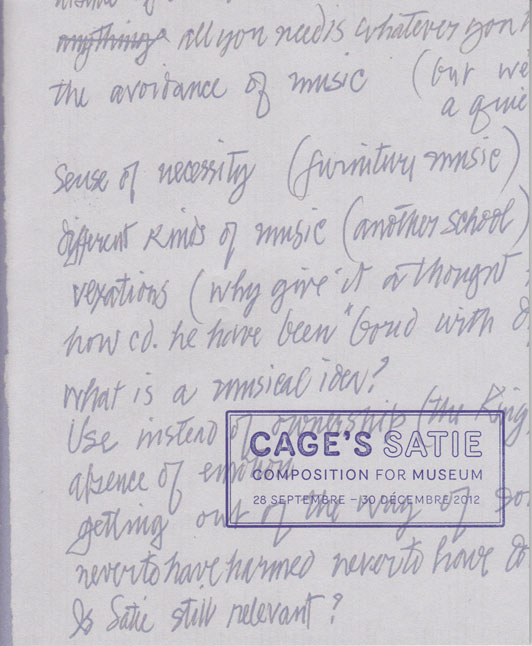 anything all you need is whatever you h
the avoidance of music (but we
a quie
Sense of necessity (furniture music)
different kinds of music (another school)
vexations (why give it a thought,
how cd. he have been "bored with
what is a musical idea?
Use instead of ownership (the Ring
absence of emotion
getting out of the way of so
never to have harmed never to have do
Is Satie still relevant?
CAGE'S SATIE
COMPOSITION FOR MUSEUM
28 SEPTEMBRE – 30 DÉCEMBRE 2012